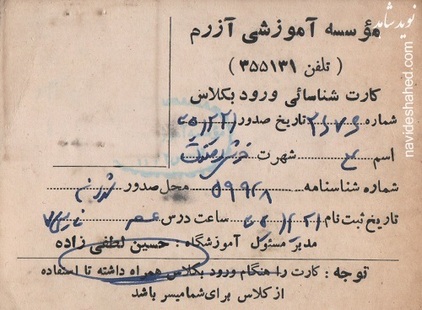 مؤسسه آموزشی آزرم
( تلفن ۳۵۵۱۳۱ )
کارت شناسائی ورود بکلاس
شماره ۲۶۷۶ تاریخ صدور
اسم شهرت
شماره شناسنامه ۵۹۹۲۸ محل صدور
تاریخ ثبت نام ساعت درس عصر
مدیر مسئول آموزشگاه : حسین لطفی زاده
توجه : کارت را هنگام ورود بکلاس همراه داشته تا استفاده
از کلاس برای شما میسر باشد
نوید شاهد
navideshahed.com